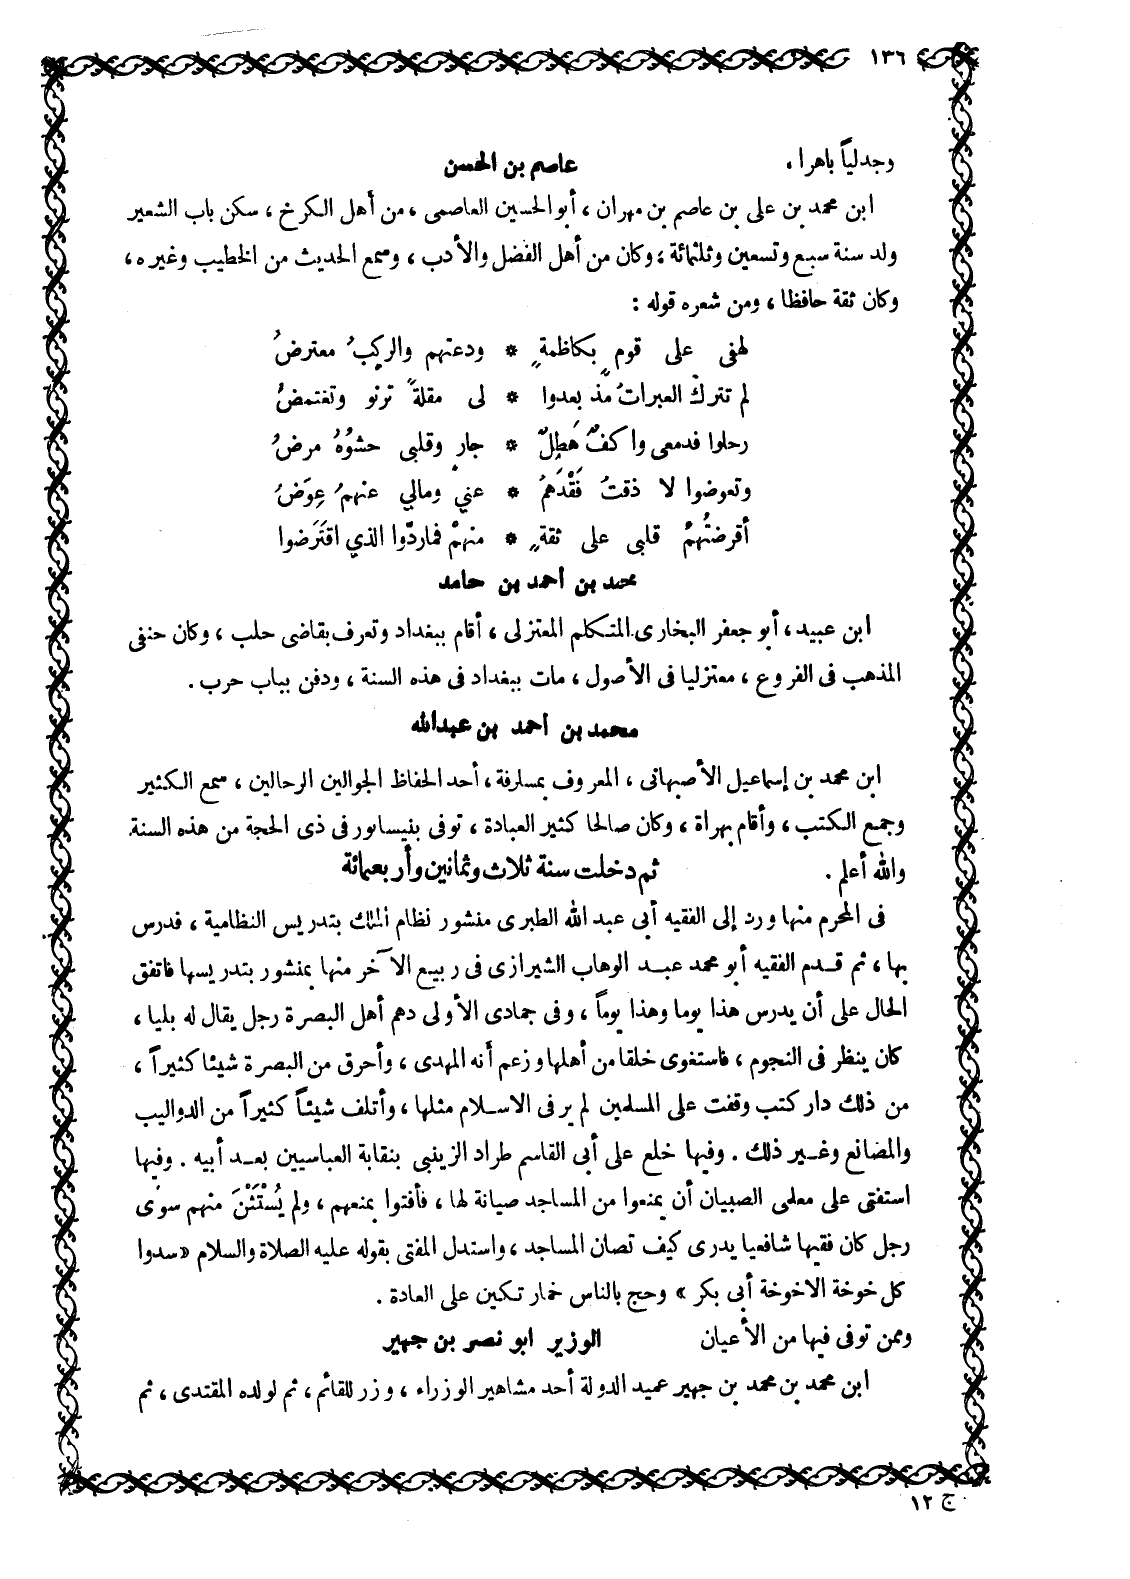 ١٣٦
وجدلياً باهرا ، عاصم بن الحسن
ابن محمد بن على بن عاصم بن مهران ، أبو الحسين العاصمى ، من أهل الكرخ ، سكن باب الشعير
ولد سنة سبع وتسعين وثلثمائة ، وكان من أهل الفضل والأدب ، وسمع الحديث من الخطيب وغيره ،
وكان ثقة حافظا ، ومن شعره قوله :
لهفى على قومٍ بكاظمةٍ * ودعتهم والركبُ معترضُ
لم تترك العبراتُ مذ بعدوا * لى مقلةً ترنو وتغتمضُ
رحلوا فدمعى واكفٌ هَطِلٌ * جارٍ وقلبى حشوُهُ مرضُ
وتعوضوا لا ذقتُ فَقْدَهمُ * عني ومالي عنهمُ عِوَضُ
أقرضتُهمُ قلبى على ثقةٍ * منهمْ فماردّوا الذي اقتَرَضوا
محمد بن أحمد بن حامد
ابن عبيد ، أبو جعفر البخارى المتكلم المعتزلى ، أقام ببغداد وتعرف بقاضى حلب ، وكان حنفى
المذهب فى الفروع ، معتزليا فى الأصول ، مات ببغداد فى هذه السنة ، ودفن بباب حرب .
محمد بن أحمد بن عبدالله
ابن محمد بن إسماعيل الأصبهانى ، المعروف بمسلرفة ، أحد الحفاظ الجوالين الرحالين ، سمع الكثير
وجمع الكتب ، وأقام بهراة ، وكان صالحا كثير العبادة ، توفى بنيسابور فى ذى الحجة من هذه السنة
والله أعلم . ثم دخلت سنة ثلاث وثمانين وأربعمائة
فى المحرم منها ورد إلى الفقيه أبى عبد الله الطبرى منشور نظام الملك بتدريس النظامية ، فدرس
بها ، ثم قدم الفقيه أبو محمد عبد الوهاب الشيرازى فى ربيع الآخر منها بمنشور بتدريسها فاتفق
الحال على أن يدرس هذا يوما وهذا يوماً ، وفى جمادى الأولى دهم أهل البصرة رجل يقال له بليا ،
كان ينظر فى النجوم ، فاستغوى خلقا من أهلها وزعم أنه المهدى ، وأحرق من البصرة شيئا كثيراً ،
من ذلك دار كتب وقفت على المسلمين لم ير فى الاسلام مثلها ، وأتلف شيئاً كثيراً من الدواليب
والمضانع وغير ذلك . وفيها خلع على أبى القاسم طراد الزينبى بنقابة العباسيين بعد أبيه . وفيها
استفتى على معلمى الصبيان أن يمنعوا من المساجد صيانة لها ، فأفتوا بمنعهم ، ولم يُسْتَثْنَ منهم سوى
رجل كان فقيها شافعيا يدرى كيف تصان المساجد ، واستدل المفتى بقوله عليه الصلاة والسلام « سدوا
كل خوخة الاخوخة أبى بكر » وحج بالناس خمار تكين على العادة .
وممن توفى فيها من الأعيان الوزير ابو نصر بن جهير
ابن محمد بن محمد بن جهير عميد الدولة أحد مشاهير الوزراء ، وزر للقائم ، ثم لولده المقتدى ، ثم
ج ١٢